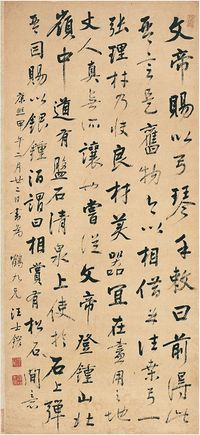 文帝賜以弓琴手敕曰前得此
琴言是舊物今以相借并往桑弓一
張理材乃快良材美器宜在盡用之地
丈人真無所讓也嘗從文帝登鍾山北
嶺中道有盤石清泉上使於石上彈
琴因賜以銀鍾酒謂曰相賞有松石間意
康熙甲午三月廿二日書為 鶴九兄 汪士鋐